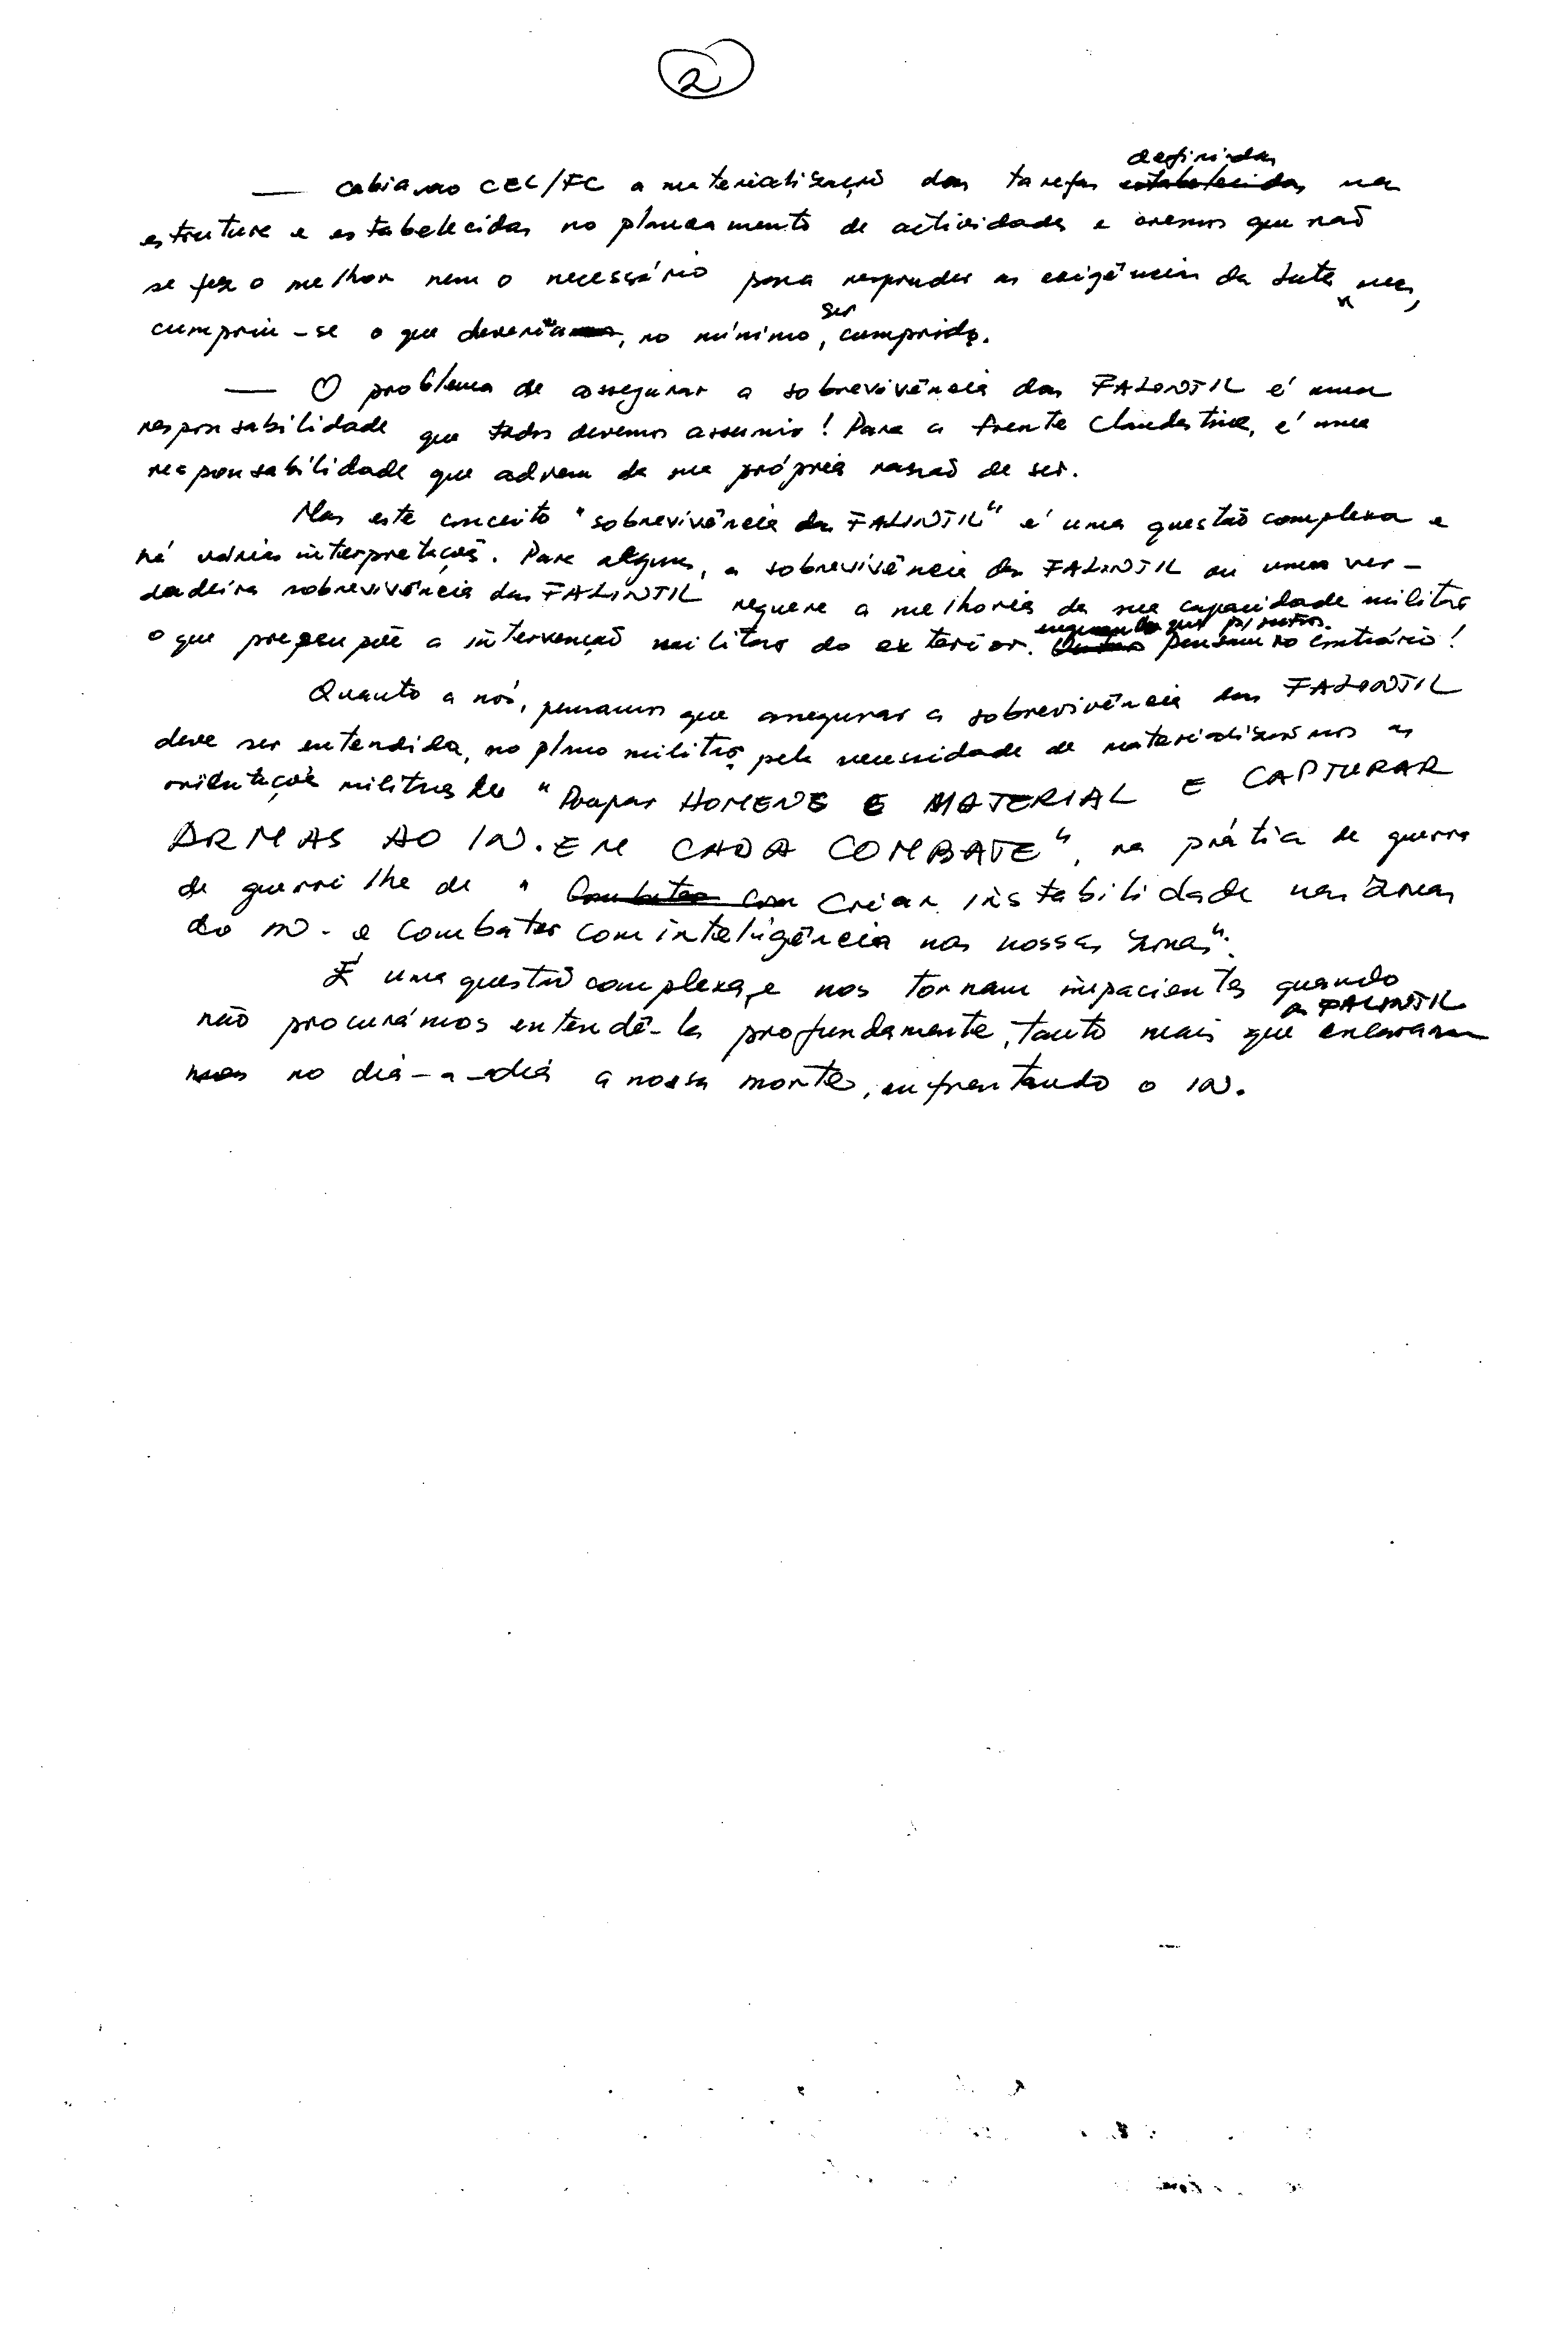 2
— Cabia ao CEL/FC a materialização das tarefas definidas na
estrutura e estabelecidas no planeamento de actividades e cremos que não
se fez o melhor nem o necessário para responder as exigências da luta mas,
cumpriu-se o que deveria, no mínimo, ser cumprido.
— O problema de assegurar a sobrevivência das FALINTIL é uma
responsabilidade que todos devemos assumir! Para a frente Clandestina, é uma
responsabilidade que advem da sua própria rasão de ser.
Mas este conceito "sobrevivência das FALINTIL" é uma questão complexa e
há várias interpretações. Para alguns, a sobrevivência das FALINTIL ou uma ver-
dadeira sobrevivência das FALINTIL requere a melhoria da sua capacidade militar
o que pressupõe a intervenção militar do exterior. enquanto que p/ outros pensam no contrário!
Quanto a nós, pensamos que assegurar a sobrevivência das FALINTIL
deve ser entendida, no plano militar, pela necessidade de materializarmos as
orientações militares de "Poupar HOMENS E MATERIAL E CAPTURAR
ARMAS AO IN. EM CADA COMBATE", na prática de guerra
de guerrilha de " Criar instabilidade nas áreas
do IN. e combater com inteligência nas nossas zonas".
É uma questão complexa, e nos tornam impacientes quando
não procurámos entendê-la profundamente, tanto mais que as FALINTIL encaram
no dia-a-dia a nossa morte, enfrentando o IN.